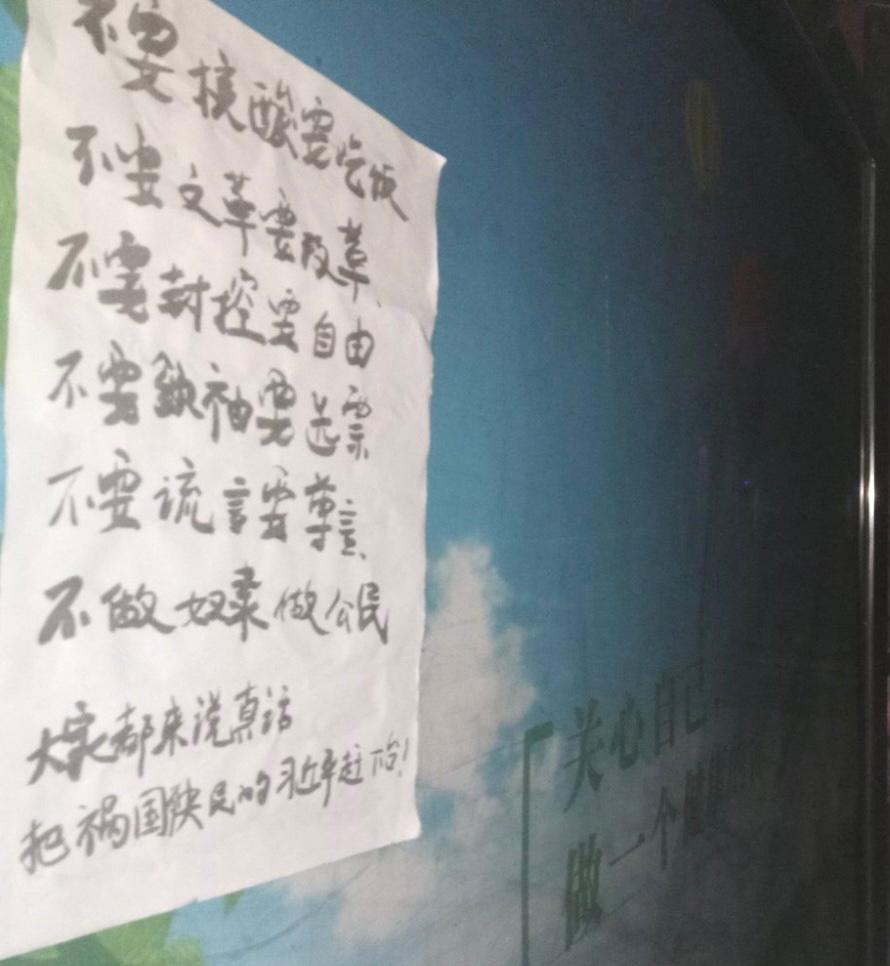 不要核酸要吃饭
不要文革要改革
不要封控要自由
不要领袖要选票
不要谎言要尊言
不做奴隶做公民
大家都来说真话
把祸国殃民的习近平赶下台！
关心自己
做一个健康